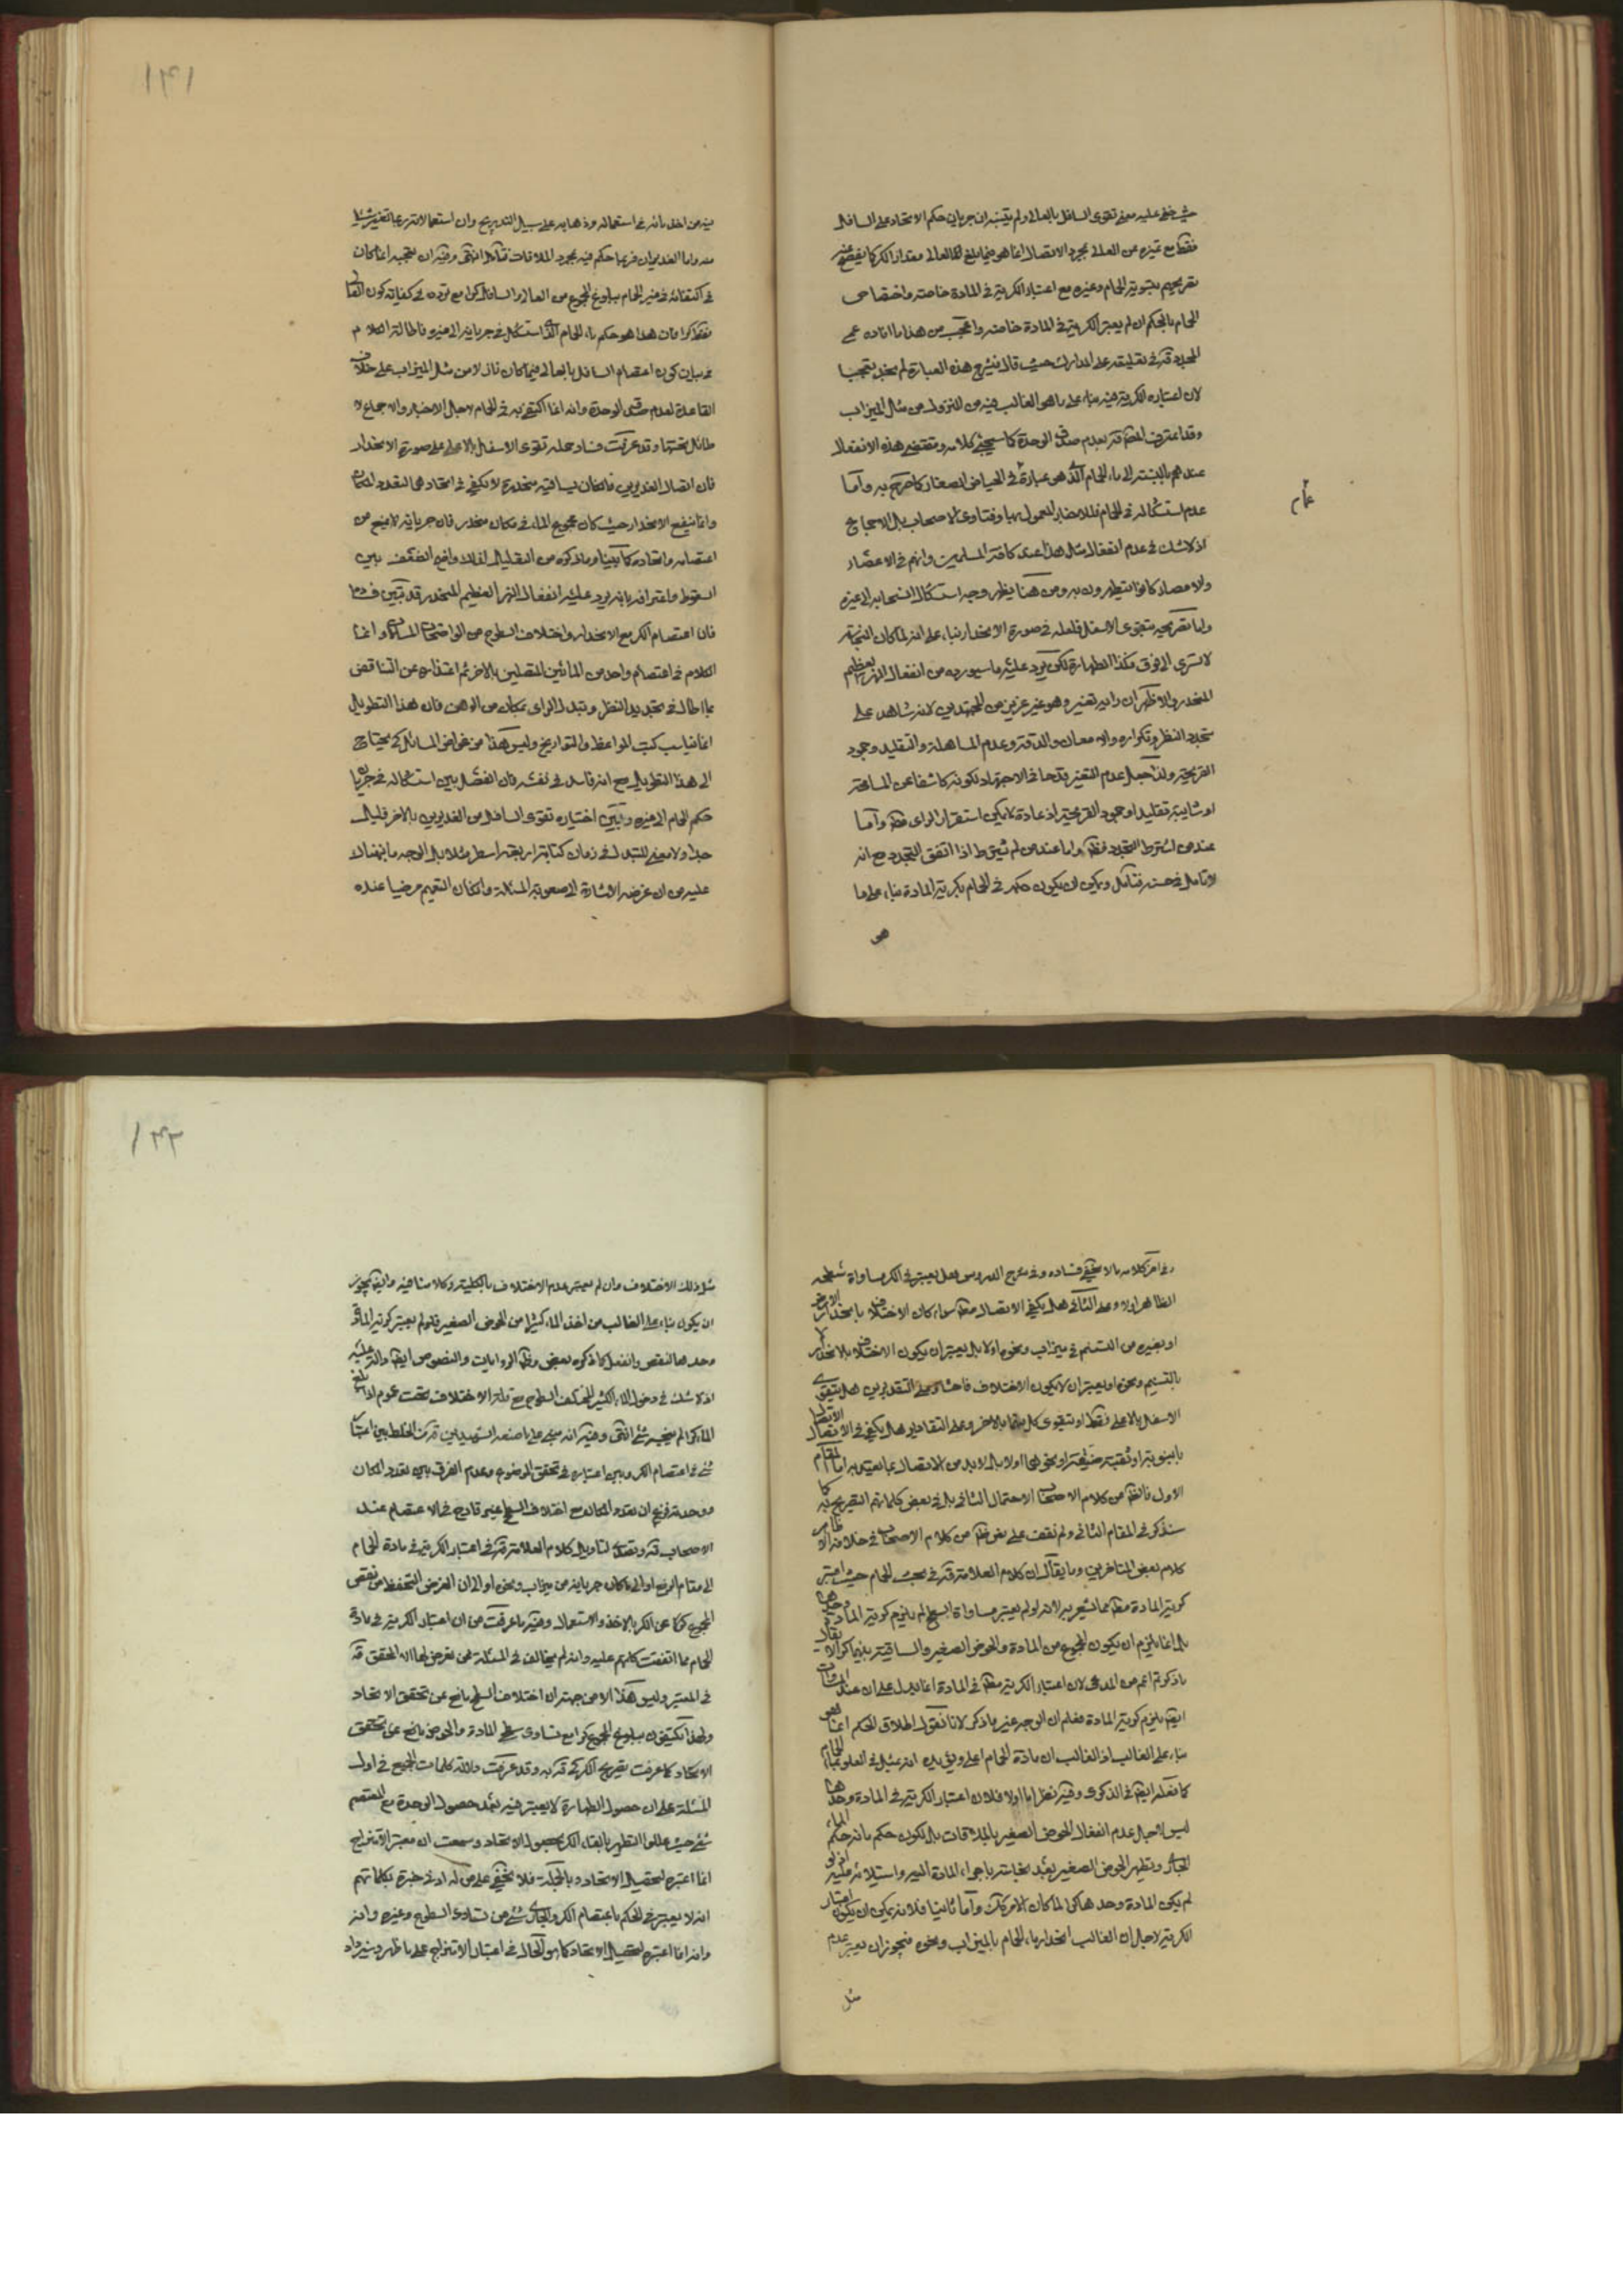 حيث خفي عليه معنى تقوى السافل بالعالي ولم يتنبه ان جريان حكم الاتحاد على السافل
فقط مع تميزه عن العالي بمجرد الاتصال انما هو فيما بلغ العالي مقدار الكر كما يفصح عنه
تقريحهم بتسوية الحمام وغيره مع اعتبار الكرية في المادة خاصة واختصاص
الحمام بالحكم ان لم يعتبر الكرية في المادة خاصة واعجب من هذا ما افاده عمي
المجدد قده في تعليقه على المدارك حيث قال بشرح هذه العبارة لم نجد تعجبا
لان اعتباره الكرية فيه بناء على ما هو الغالب فيه من النزول من مثل الميزاب
وقد اعترض المصنف قده بعدم صدق الوحدة كما سيجئ كلامه ومقتضى هذه الانفعال
عندهم بالنسبة الى ماء الحمام الذي هو عبارة عما في الحياض الصغار كما صرح به واما
عام
عدم استشكاله في الحمام فللاخبار المعمول بها وفتاوى الاصحاب بل الاجماع
اذ لا شك في عدم انفعال مثل هذا عند كافة المسلمين وانهم في الاعصار
والامصار كانوا يتطهرون به ومن هنا يظهر وجه استشكال انسحابه الى غيره
واما تصريحه بتقوى الاسفل فلعله في صورة الانحدار بناء على انه لما كان النجاسة
لا تسرى الى فوق فكذا الطهارة لكن يرد عليه ما سيورده من انفعال النهر العظيم
المنحدر والاظهر ان رايه تغير وهو غير عزيز من المجتهدين لانه شاهد على
تجدد النظر وتكراره والامعان والدقة وعدم المساهلة والتقليد وجمود
القريحة ولذا جعل عدم التغير قدحا في الاجتهاد لكونه كاشفا عن المسامحة
او شايبة تقليد او جمود القريحة اذ عادة لا يمكن استقرار الراى فيه واما
عند من اشترط التجدد فظ واما عند من لم يشترط اذا اتفق التجدد مع انه
لا تامل في حسنه فتامل ويمكن ان يكون حكمه في الحمام بكرية المادة بناء على ما
هو
١٣١
فيه من اخل بانه في استعماله وذهابه على سبيل التدريج وان استعمالاته ربما تغير شيئا
منه واما الغديران فربما حكم فيه بمجرد الملاقات فتامل انتهى وفيه ان تعجبه انما كان
في اكتفائه في غير الحمام ببلوغ المجموع من العالي والسافل كرا مع تردده في كفاية كون العالي
فقط كرا فان هذا هو حكم ماء الحمام الذي استشكل في جريانه الى غيره فاطالة الكلام
في بيان كون اعتصام السافل بالعالي فيما كان نازلا من مثل الميزاب على خلاف
القاعدة لعدم صدق الوحدة وانه انما اكتفى به في الحمام لاجل الاخبار والاجماع لا
طائل تحتها وقد عرفت فساد حمله تقوى الاسفل بالاعلى على صورة الانحدار
فان اتصال الغديرين فالكان بساقية منحدرة لا يكفي في اتحادهما لتعدد المكان
وانما ينفع الانحدار حيث كان مجموع الماء في مكان منحدر فان جريانه لا يمنع من
اعتصامه واتحاده كما بينا وما ذكره من التقليل لذلك واضح الضعف بين
السقوط واعترافه بانه يرد عليه انفعال النهر العظيم المنحدر قد تبين فساده
فان اعتصام الكر مع الانحدار واختلاف السطوح من الواضحات المسلمات وانما
الكلام في اعتصام واحد من المائين المتصلين بالاخر ثم اعتذاره عن التناقض
بما اطال في تجديد النظر وتبدل الراى بمكان من الوهن فان هذا التطويل
انما يناسب كتب المواعظ والتواريخ وليس هذا من غوامض المسائل كى يحتاج
الى هذا التطويل مع انه فاسد في نفسه فان الفصل بين استشكاله في جريان
حكم الحمام الى غيره وبين اختياره تقوى السافل من الغديرين بالاخر قليل
جدا ولا معنى للتبدل في زمان كتابة اربعة اسطر مثلا بل الوجه ما نبهناك
عليه من ان غرضه الاشارة الى صعوبة المسئلة والكان التعميم مرضيا عنده
وفي اخر كلامه ما لا يخفى فساده وفي شرح الدروس هل يعتبر في الكر مساواة سطحه
الظاهر اولا وعلى الثاني هل يكفي الاتصال مطلقا سواء كان الاختلاف بانحدار الارض
او بغيره من التسنم في ميزاب ونحوه اولا بل يعتبر ان يكون الاختلاف بالانحدار لا
بالتسنيم ونحوه او يعتبر ان لا يكون الاختلاف فاحشا وعلى التقديرين هل يتقوى
الاسفل بالاعلى فقط او يتقوى كل منهما بالاخر وعلى التقادير هل يكفي في الاتصال الاتصال
بانبوبة او ثقبة ضيقة او نحوهما اولا بل لابد من الاتصال بما يعتد به اما المقام
الاول فالظ من كلام الاصحاب الاحتمال الثاني بل في بعض كلماتهم التصريح به كما
سنذكر في المقام الثاني ولم نقف على نص ظ من كلام الاصحاب في خلافه الا ظاهر
كلام بعض المتاخرين وما يقال ان كلام العلامة قده في بحث الحمام حيث اعتبر
كرية المادة مطلقا مما يشعر به لانه لو لم يعتبر مساواة السطح لم يلزم كرية المادة وحدها
بل انما يلزم ان يكون المجموع من المادة والحوض الصغير والساقية بينهما كرا لا يقال
ما ذكرتم اعم من المدعى لان اعتبار الكرية مطلقا في المادة انما يدل على ان عند المساوات
ايضا يلزم كرية المادة فعلم ان الوجه غير ما ذكر لانا نقول اطلاق الحكم انما هو
بناء على الغالب اذ الغالب ان مادة الحمام اعلى ويؤيده انه يمثل في العلو بماء الحمام
كما فعله ايضا في الذكرى وفيه نظر اما اولا فلان اعتبار الكرية في المادة وحدها
ليس لاجل عدم انفعال الحوض الصغير بالملاقات بل لكون حكم مائه حكم الماء
الجاري وتطهير الحوض الصغير بعد نجاسته باجراء المادة اليه واستيلائه عليه اذ لو
لم يكن المادة وحدها كرا لما كان الامر كك واما ثانيا فلانه يمكن ان يكون اعتبار
الكرية لاجل ان الغالب انحدار ماء الحمام بالميزاب ونحوه فيجوز ان يعتبر عدم
مثل
١٣٢
مثل ذلك الاختلاف وان لم يعتبر عدم الاختلاف بالكلية وكلامنا فيه وايضا يجوز
ان يكون بناء على الغالب من اخذ الماء كثيرا من الحوض الصغير فلو لم يعتبر كرية المادة
وحدها لنقص وانفعل كما ذكره بعض وظ الروايات والنصوص ايضا دالة عليه
اذ لا شك في دخول الماء الكثير المختلف السطوح مع قلة الاختلاف تحت عموم اذا بلغ
الماء كرا لم ينجسه شئ انتهى وفيه انه مبني على ما صنعه الشهيدين قده من الخلط بين اعتبار
شئ في اعتصام الكر وبين اعتباره في تحقق الموضوع وعدم الفرق بين تعدد المكان
ووحدته فزعم ان تعدد المكان مع اختلاف السطح غير قادح في الاعتصام عند
الاصحاب قده وتصدى لتاويل كلام العلامة قده في اعتبار الكرية في مادة الحمام
الى مقام الرفع او الى ما كان جريانه من ميزاب ونحوه او الى ان الغرض التحفظ من نقص
المجموع عن الكر بالاخذ والاستعمال وفيه ما عرفت من ان اعتبار الكرية في مادة
الحمام مما اتفقت كلمتهم عليه وانه لم يخالف في المسئلة ممن تعرض لها الا المحقق قده
في المعتبر وليس هذا الا من جهة ان اختلاف السطح مانع عن تحقق الاتحاد
ولهذا يكتفون ببلوغ المجموع كرا مع تساوى سطح المادة والحوض مانع عن تحقق
الاتحاد كما عرفت تصريح الكركي قده به وقد عرفت دلالة كلمات الجميع في اول
المسئلة على ان حصول الطهارة لا يعتبر فيه بعد حصول الوحدة مع المعتصم
شئ حيث عللوا التطهير بالقاء الكر بحصول الاتحاد وسمعت ان معتبر الامتزاج
انما اعتبره لتحصيل الاتحاد وبالجملة فلا يخفى على من له ادنى خبرة بكلماتهم
انه لا يعتبر في الحكم باعتصام الكر والجاري شئ من تساوى السطوح وغيره وانه
وانه انما اعتبره لتحصيل الاتحاد كما هو الحال في اعتبار الامتزاج على ما ظهر وسيزداد